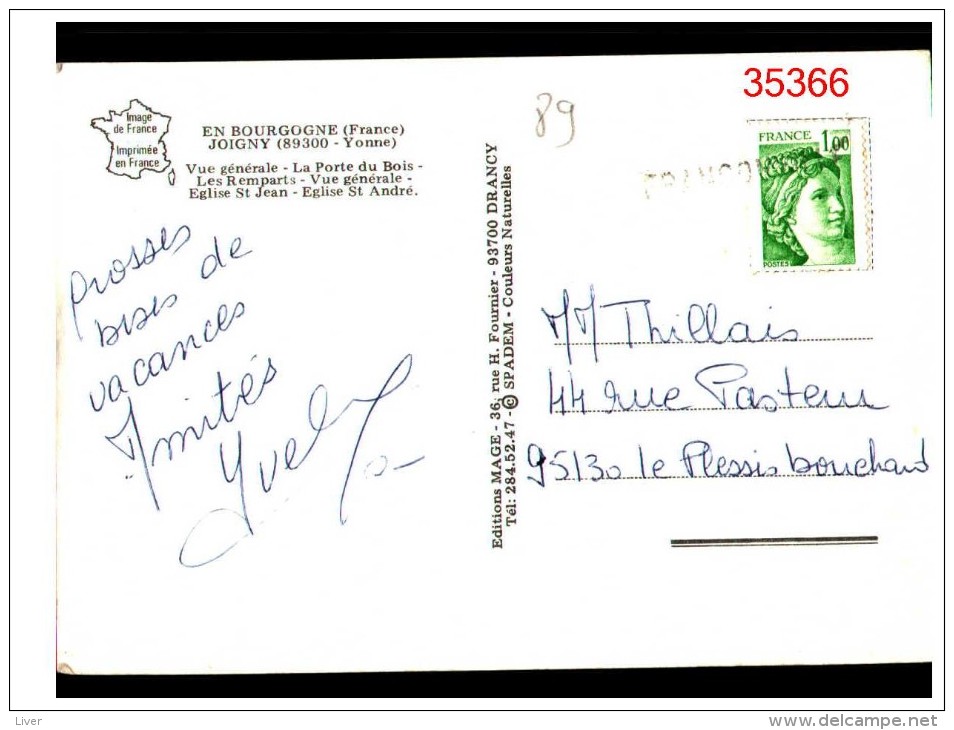 35366
89
Image
de France
Imprimée
en France
EN BOURGOGNE (France)
JOIGNY (89300 - Yonne)
Vue générale - La Porte du Bois -
Les Remparts - Vue générale -
Eglise St Jean - Eglise St André.
FRANCE 1,00
POSTES
Prosses
bises de
vacances
Amitiés
Editions MAGE - 36, rue H. Fournier - 93700 DRANCY
Tél: 284.52.47 - © SPADEM - Couleurs Naturelles
MM Thillais
44 rue Pasteur
95130 le Plessis bouchard
Liver
www.delcampe.net